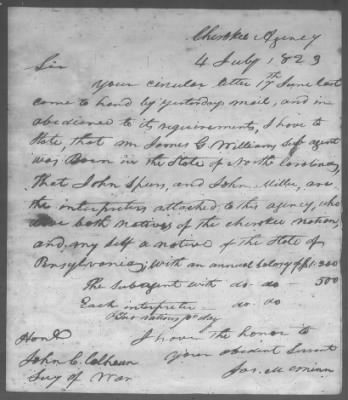 Cherokee Agency
4 July 1823
Sir
Your circular letter 17th June last
come to hand by yesterdays mail, and in
obedience to its requirements, I have to
State, that Mr James G Williams Sub agent
was Born in the State of North Carolina,
that John Spers, and John Miller, are
the interpreters attached to this agency, who
are both natives of the cherokee Nation,
and, my self a native of the State of
Pensylvania; with an annual Salary of $1.300
The Subagent with do- do- 500
Each interpreter do- do-
rations pr day
I have the honor to
Honl
John C. Calhoun
your obedient Servt
Secy of War
Jos. McMinn